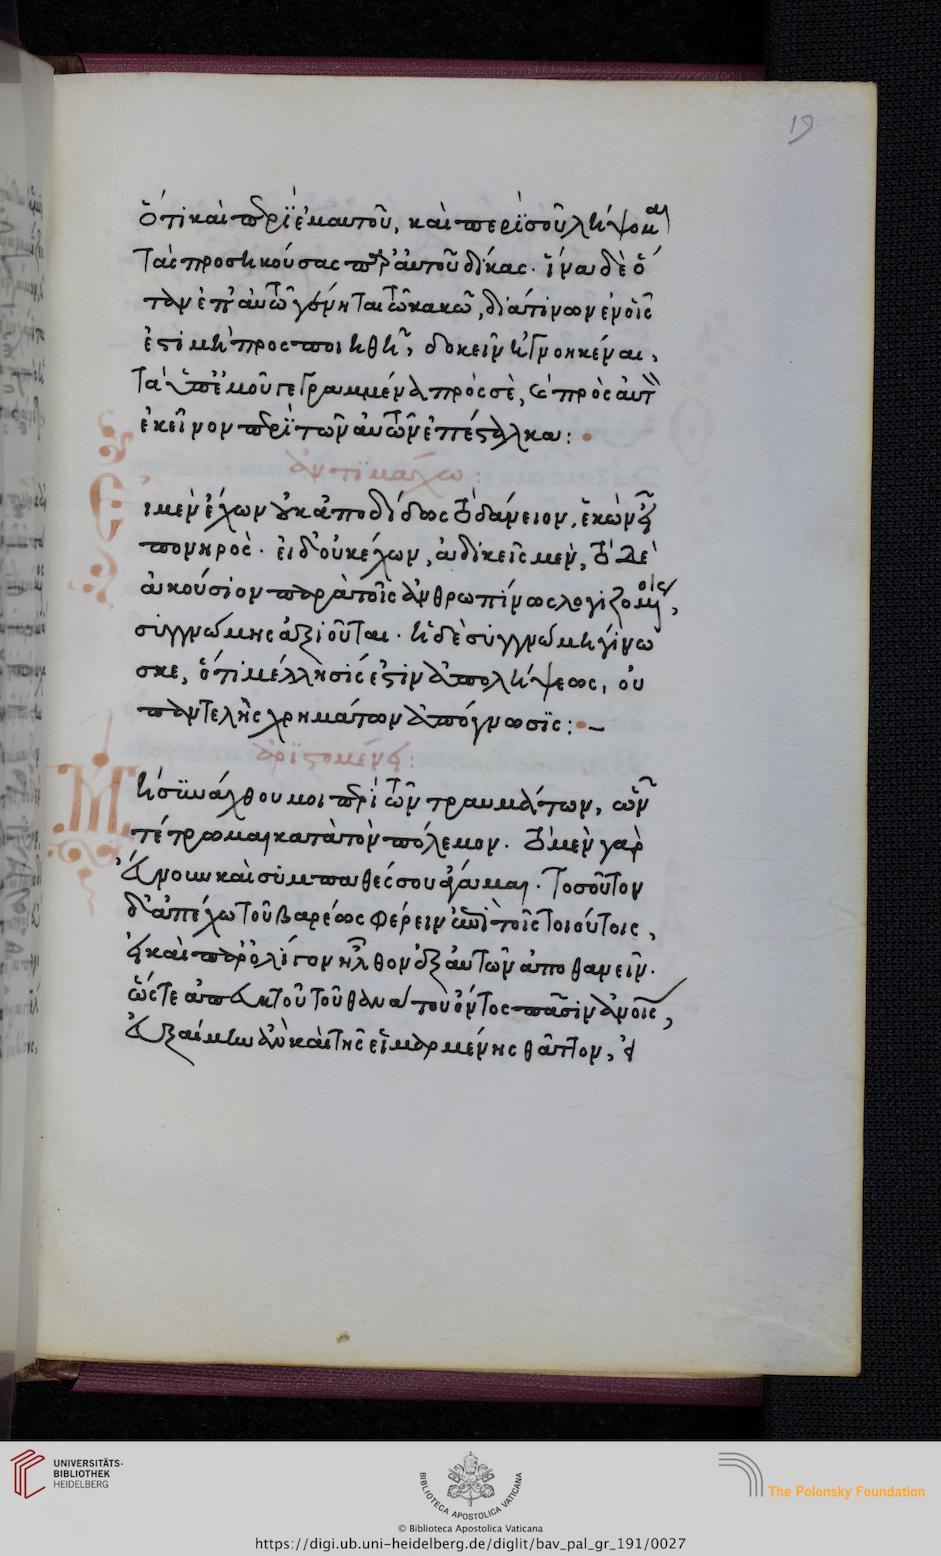 19
ὅτι καὶ περὶ ἐμαυτοῦ, καὶ περὶ σοῦ λήψομαι
τὰς προσηκούσας παρ' αὐτοῦ δίκας. ἵνα δὲ ὁ
ἐστι μὴ προσποιηθῆς, δοκεῖν ἠγνοηκέναι,
τὰ ὑπ' ἐμοῦ γεγραμμένα πρὸς σὲ, καὶ πρὸς αὐτὸν
ἐκεῖνον περὶ τῶν αὐτῶν ἐπέσταλκα:
ἀντιμάχω:
Εἰ μὲν ἔχων οὐκ ἀποδίδως τὸ δάνειον, ἑκὼν εἶ
πονηρός. εἰ δ' οὐκ ἔχων, ἀδικεῖς μὲν, τὸ δὲ
ἀκούσιον παρὰ τοῖς ἀνθρωπίνως λογιζομένοις,
συγγνώμης ἀξιοῦται. ἡ δὲ συγγνώμη γίνω
σκε, ὅτι μέλλησίς ἐστιν ἀπολήψεως, οὐ
παντελὴς χρημάτων ἀπόγνωσις:
ἀριστομένει:
Μὴ σὺ ἄχθου μοι περὶ τῶν τραυμάτων, ὧν
τέτρωμαι κατὰ τὸν πόλεμον. τὸ μὲν γὰρ
εὔνουν καὶ συμπαθές σου ἄγαμαι. τοσοῦτον
δ' ἀπέχω τοῦ βαρέως φέρειν ἐπὶ τοῖς τοιούτοις,
εἰ καὶ παρ' ὀλίγον ἦλθον ἐξ αὐτῶν ἀποθανεῖν.
ὥστε ἀπευκτοῦ τοῦ θανάτου ὄντος πᾶσιν ἀνοις,
εὐξαίμην ἂν καὶ τῆς εἱμαρμένης θᾶττον, εἰ
UNIVERSITÄTS-
BIBLIOTHEK
HEIDELBERG
BIBLIOTECA APOSTOLICA VATICANA
The Polonsky Foundation
© Biblioteca Apostolica Vaticana
https://digi.ub.uni-heidelberg.de/diglit/bav_pal_gr_191/0027